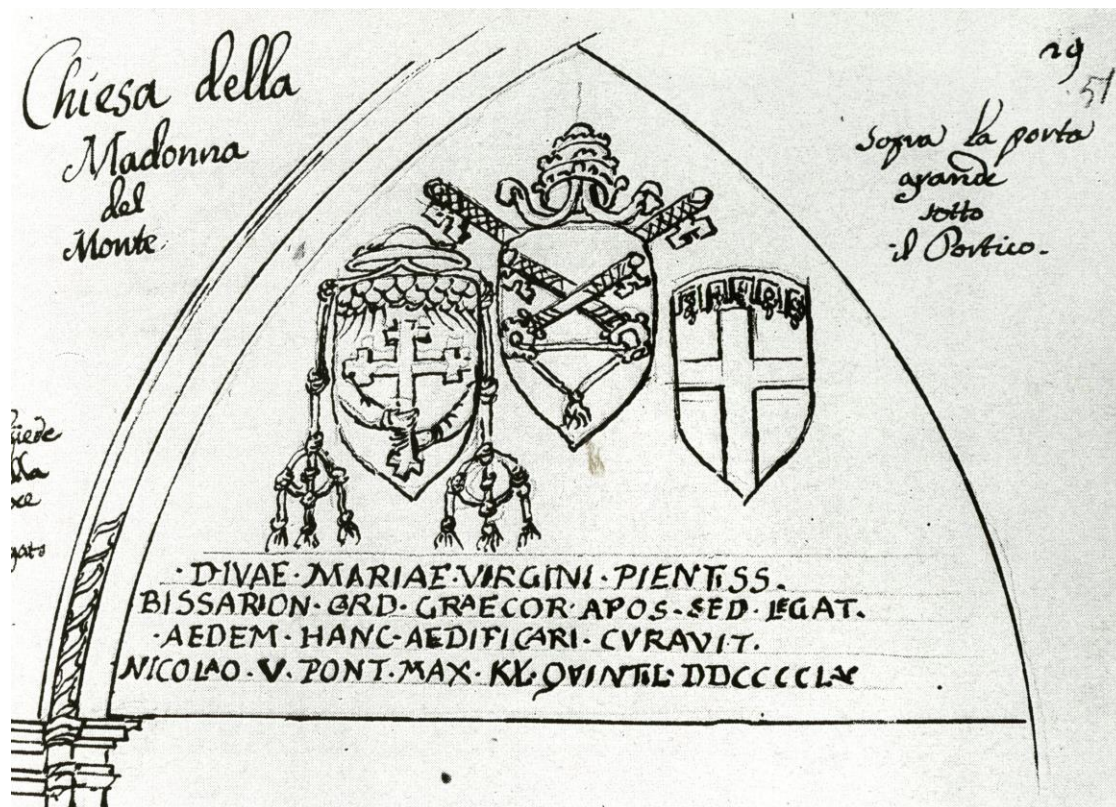 Chiesa della
Madonna
del
Monte.
29
51
Sopra la porta
grande
sotto
il Portico.
·DIVAE·MARIAE·VIRGINI·PIENTISS.
BISSARION·CRD·GRAECOR·APOS·SED·LEGAT.
·AEDEM·HANC·AEDIFICARI·CVRAVIT.
NICOLAO·V·PONT·MAX·KL·QVINTIL·DDCCCCL